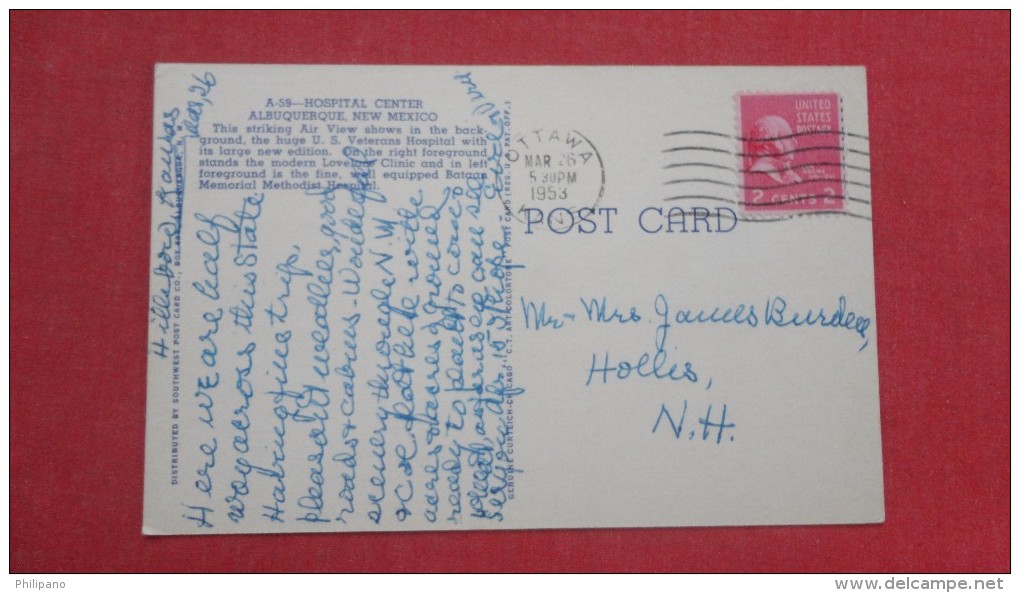 A-59—HOSPITAL CENTER
ALBUQUERQUE, NEW MEXICO
This striking Air View shows in the back-
ground, the huge U. S. Veterans Hospital with
its large new edition. On the right foreground
stands the modern Lovelace Clinic and in left
foreground is the fine, well equipped Bataan
Memorial Methodist Hospital.
Hillsboro Kansas
Mar, 26
Here we are half
way across this state
Having fine trip,
pleasant weather, good
roads & cabins - Wonderful
scenery through N.M.
acres & acres ground
ready to plant to corn
see you Apr 15 I hope
DISTRIBUTED BY SOUTHWEST POST CARD CO., BOX ALBUQUERQUE, N. M.
GENUINE CURTEICH-CHICAGO "C.T. ART-COLORTONE" POST CARD (REG. U.S. PAT. OFF.)
OTTAWA
MAR 26
5 30 PM
1953
UNITED
STATES
POSTAGE
2 CENTS 2
POST CARD
Mr - Mrs. James Burdee,
Hollis,
N.H.
Philipano
www.delcampe.net